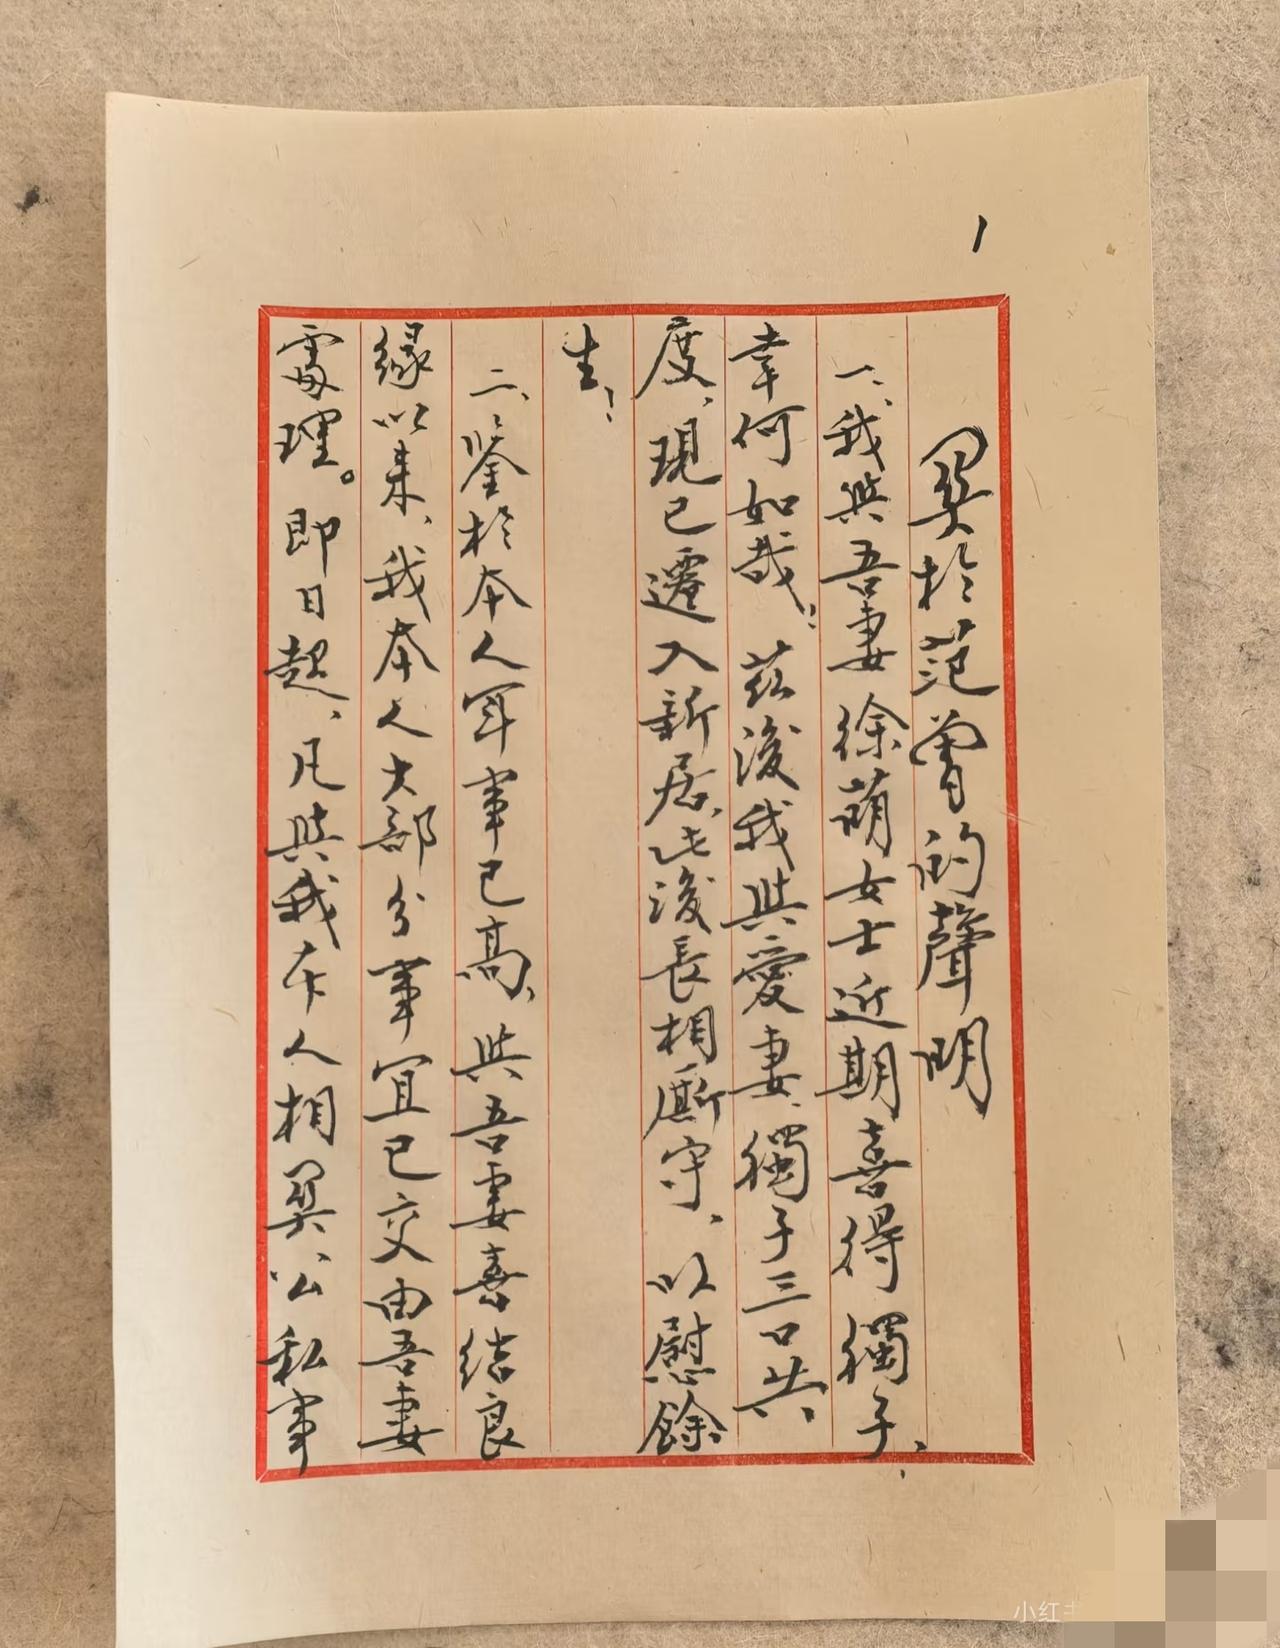 1
關於范曾的聲明
一、我與吾妻徐萌女士近期喜得獨子、
幸何如哉！茲後我與愛妻、獨子三口共
度、現已遷入新居、此後長相廝守、以慰餘
生！
二、鑒於本人年事已高、與吾妻喜結良
緣以來、我本人大部分事宜已交由吾妻
處理。即日起、凡與我本人相關公私事
小红书